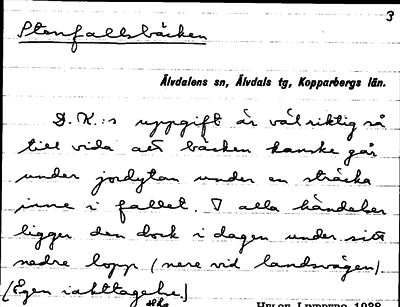 3
Stenfallsbäcken
Älvdalens sn, Älvdals tg, Kopparbergs län.
D. K.:s uppgift är väl riktig så
till vida att bäcken kanske går
under jordytan under en sträcka
inne i fallet. I alla händelser
ligger den dock i dagen under sitt
nedre lopp (nere vid landsvägen).
(Egen iakttagelse.)
Helge Lindberg 1938